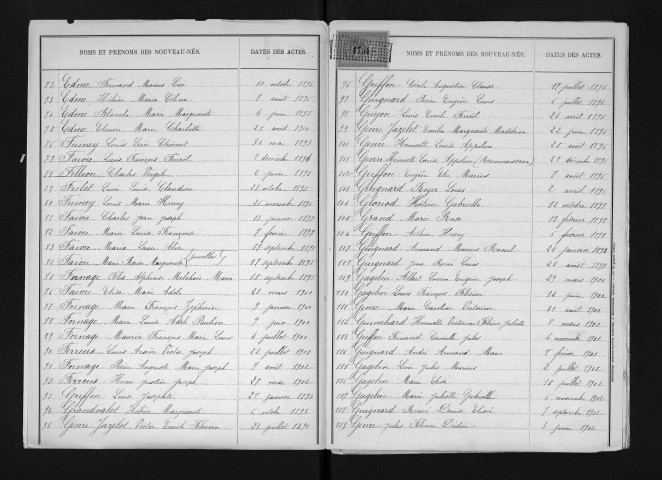 NOMS ET PRÉNOMS DES NOUVEAU-NÉS. DATES DES ACTES.
72 Edme Fernand Marius Léon 10 octobre 1894
73 Edme Hélène Maria Célina 8 août 1895
74 Edme Blanche Marie Marguerite 4 juin 1898
75 Edme Marie Charlotte 20 août 1900
76 Louis Léon Clément 30 mai 1893
77 Faivre Louis François 1894
78 Fillion Charles 6 juin 1895
79 Louis Claudius 23 octobre 1895
80 Louis Marie Henry 25 novembre 1896
81 Faivre Charles Jean Joseph 12 janvier 1897
82 Faivre Maria Louise Françoise 7 février 1897
83 Faivre Maria Laure 17 septembre 1898
84 Faivre Marie Marguerite jumelles 17 septembre 1898
85 Fornage Alphonse Marie 15 septembre 1898
86 Faivre Élise Marie Adèle 23 mars 1900
87 Fornage Marie François Joséphine 2 janvier 1900
88 Fornage Marie Louise Pauline 7 1900
89 Fornage Maurice François Marie Louis 2 juillet 1901
90 Ferreux Louis Victor Joseph 22 juillet 1901
91 Fornage Pierre Auguste Marie Joseph 7 août 1902
92 Ferreux Henri Joseph 29 mai 1902
93 Griffon Louise 27 janvier 1893
94 Grandvallet Hélène Marguerite 6 octobre 1893
95 Genre Jazelot Victor Émile 23 juillet 1894
NOMS ET PRÉNOMS DES NOUVEAU-NÉS. DATES DES ACTES.
96 Griffon Augustin 17 juillet 1894
97 Guignard Eugène Louis 6 juillet 1894
98 Guyon Louis Émile 26 août 1894
99 Genre Jazelot Marguerite Madeleine 22 juin 1895
100 Genre Henriette Louise 25 août 1895
101 Genre Henriette Louise (Reconnaissance) 29 décembre 1895
102 Griffon Eugène Élie Maurice 7 août 1895
103 Guignard Roger Louis 2 avril 1896
104 Gloriod Hélène Gabrielle 12 octobre 1898
105 Grand Marie Rose 13 février 1898
106 Griffon Arthur Henry 6 février 1898
107 Guignard Armand Maurice 26 janvier 1898
108 Guignard René Louis 25 août 1899
109 Gagelin Albert Lucien Eugène Joseph 29 mars 1900
110 Gagelin Louis François 24 juin 1900
111 Genre Marie Caroline Victorine 31 août 1900
112 Guinchard Henriette Victorine Juliette 8 mars 1902
113 Griffon Fernand Camille Jules 6 novembre 1901
114 Guignard André Armand Marie 7 février 1902
115 Gagelin Léon Jules Maurice 2 juillet 1902
116 Gagelin Marie Élise 10 juillet 1902
117 Gagelin Marie Juliette Gabrielle 6 novembre 1902
118 Guignard Denise 7 septembre 1902
119 Genre Jules 8 juin 1902